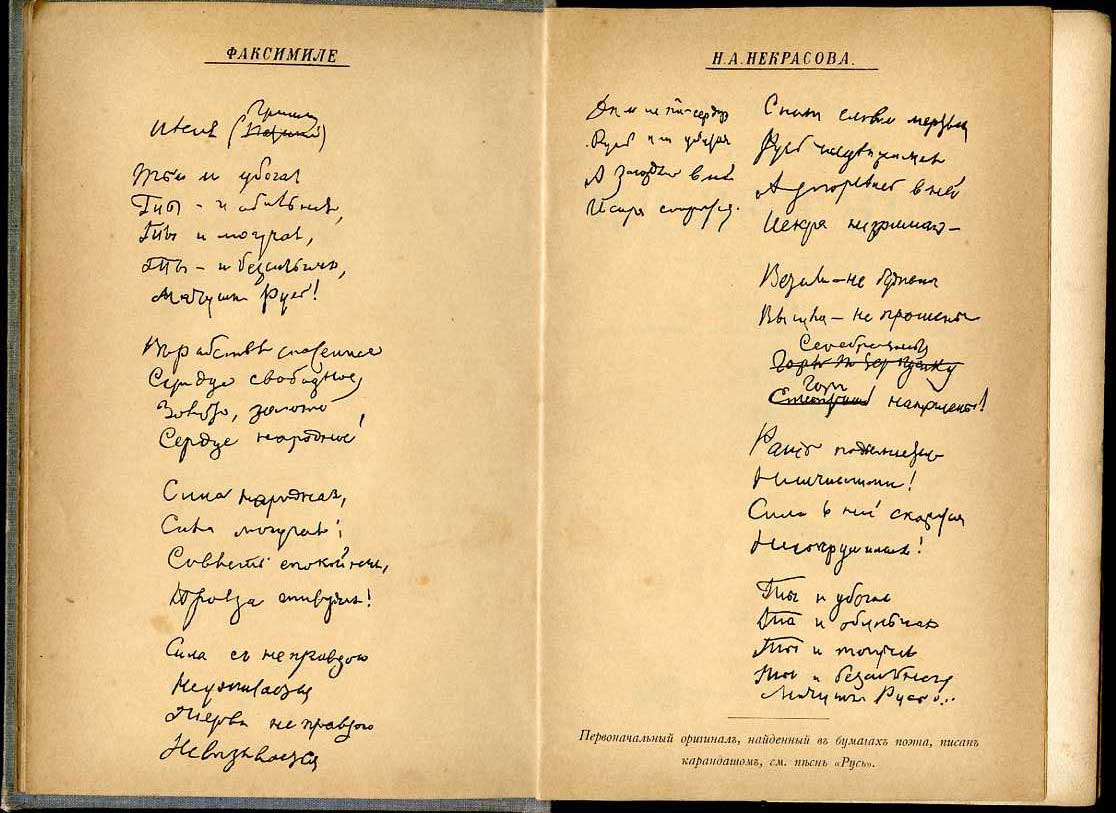 ФАКСИМИЛЕ
Гриши
Пѣсня
Ты и убогая
Ты - и обильная,
Ты и могучая,
Ты - и безсильная,
Матушка Русь!
Въ рабствѣ спасенное
Сердце свободное,
Золото, золото
Сердце народное!
Сила народная,
Сила могучая;
Совѣсть спокойная,
Правда живучая!
Сила съ неправдою
Неуживается
Жертва неправдою
Невызывается
Н.А.НЕКРАСОВА.
Русь какъ убитая
А
въ ней
Искра сокрытая.
Русь не шелохнется
А загорѣлась в ней
Искра незримая -
Встали - не бужены
Вышли - не прошены
Горы
наношены!
Рать подымается
Неисчислимая!
Сила в ней скажется
Несокрушимая!
Ты и убогая
Ты и обильная
Ты и могучая
Ты и безсильная
Матушка Русь!..
Первоначальный оригиналъ, найденный въ бумагахъ поэта, писанъ
карандашомъ, см. пѣснь «Русь».